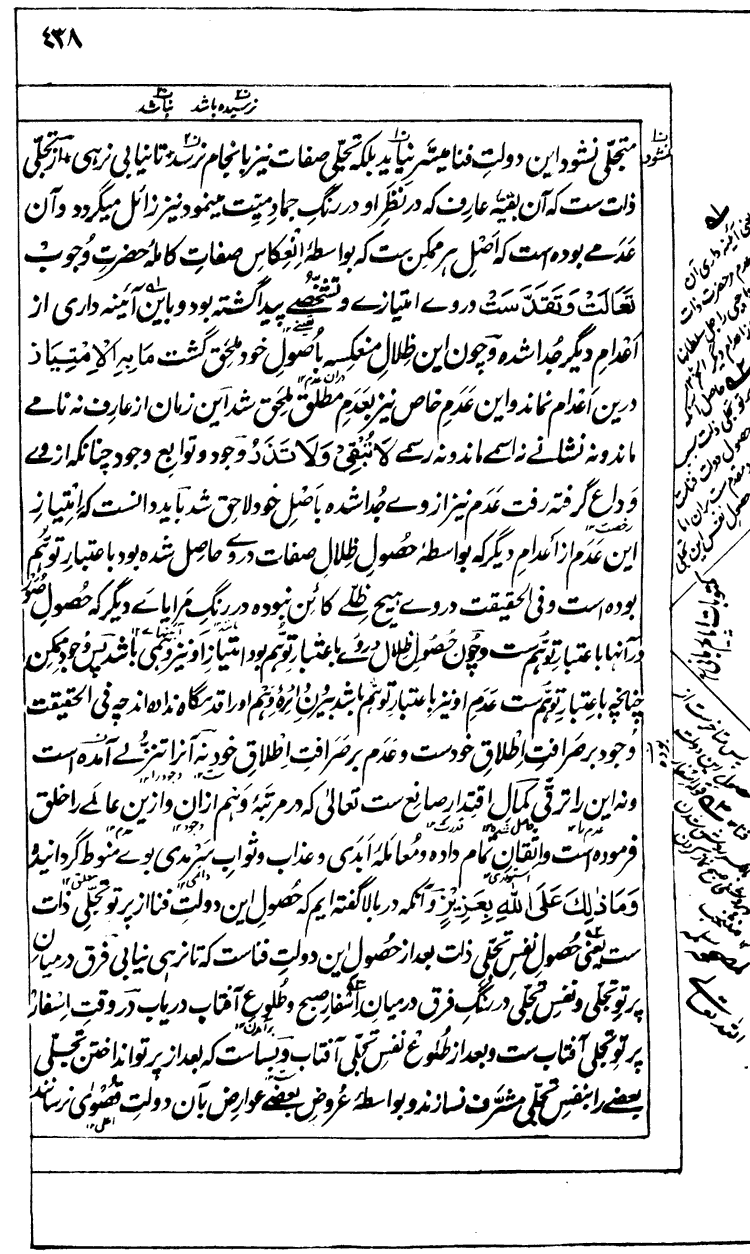 ٤٣٨
نرسیده باشد نباشد
متجلی نشود این دولتِ فنا میسّر نیاید بلکه تجلّی صفات نیز بانجام نرسد تا نیابی نرهی از تجلّی
ذات ست که آن بقیۂ عارف که در نظر او در رنگِ جماد میّت مینمود نیز زائل میگردد و آن
عَدَمے بوده است که اَصلِ هر ممکن ست که بواسطۂ اِنعکاسِ صفاتِ کاملۂ حضرتِ وُجوب
تَعَالَتْ وَتَقَدَّسَتْ در وے امتیازے و تشخّصے پیدا گشته بود و باین آئینه داری از
اَعْدامِ دیگر جُدا شده و چون این ظِلالِ منعکسه باُصولِ خود ملحق گشت مَا بِہِ الْاِمْتِیَاز
درین اَعْدام نماند و این عَدَمِ خاص نیز بعَدَمِ مطلق ملحق شد این زمان از عارف نه نامے
ماند و نه نشانے نه اسمے ماند و نه رسمے لَا تُبْقِیْ وَلَا تَذَرُ وجود و توابع وجود چنانکه از وے
وَداع گرفته رفت عَدَم نیز از وے جُدا شده باَصلِ خود لاحق شد باید دانست که اِمتیازِ
این عَدَم از اَعدامِ دیگر که بواسطۂ حُصولِ ظِلالِ صفات در وے حاصل شده بود باعتبارِ توهّم
بوده است و فی الحقیقت در وے هیچ ظِلّے کائن نبوده در رنگِ مَرایاے دیگر که حُصولِ صُوَر
در آنها باعتبارِ توهّم ست و چون حُصولِ ظلال در وے باعتبارِ توهّم بود امتیازِ او نیز وهمی باشد پس وُجودِ ممکن
چنانچه باعتبارِ توهّم ست عَدَمِ او نیز باعتبارِ توهّم باشد بیرونِ دائرۂ وهم او را قدمگاه نداده اند چه فی الحقیقت
وُجود بر صَرافتِ اِطلاقِ خود ست و عَدَم بر صَرافتِ اِطلاقِ خود نه آنرا تنزّلے آمده است
و نه این را ترقّی کمالِ اقتدارِ صانع ست تعالیٰ که در مرتبۂ وَهم ازان و ازین عالمے را خلق
فرموده است و اِتقانِ تمام داده و مُعاملۂ اَبَدی و عذاب و ثوابِ سَرمدی بوے منوط گردانیده
وَمَا ذٰلِكَ عَلَى اللّٰهِ بِعَزِیْزٍ و آنکه در بالا گفته ایم که حُصولِ این دولتِ فنا از پرتوِ تجلّی ذات
ست یعنی حُصولِ نفسِ تجلّی ذات بعد از حُصولِ این دولتِ فناست که تا نرهی نیابی فرق درمیانِ
پرتوِ تجلّی و نفسِ تجلّی در رنگِ فرق درمیانِ اِسفارِ صبح و طُلوعِ آفتاب دریاب در وقتِ اِسفار
پرتوِ تجلّی آفتاب ست و بعد از طُلوع نفسِ تجلّی آفتاب و بساست که بعد از پرتو انداختنِ تجلّی
بعضے را بنفسِ تجلّی مشرّف نسازند و بواسطۂ عُروضِ بعضے عوارض بآن دولتِ قُصْوٰی نرسانند
نشود
بوده
مکتوبات امام ربانی